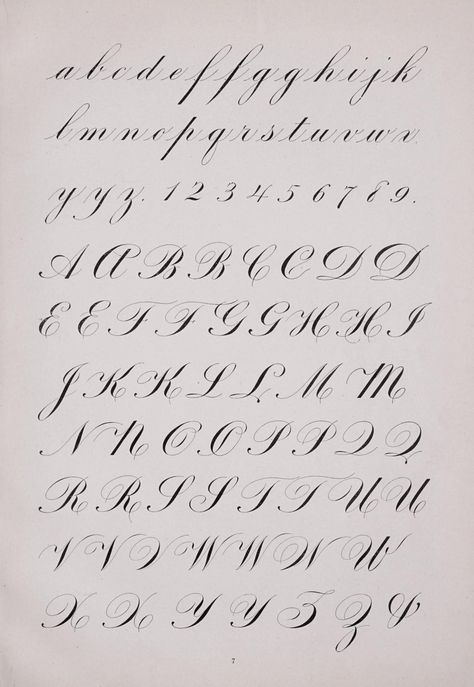 a b c d e f f g g h i j k
l m n o p q r s t u v w x
y y z . 1 2 3 4 5 6 7 8 9 .
A A B B C C D D
E E F F G G H H I
J K K L L M M
N N O O P P Q Q
R R S S T T U U
V V V W W W W
X X Y Y Z Z &
7